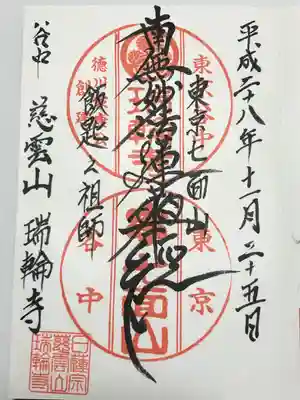 平成二十八年十一月二十五日
東京七面山
南無妙法蓮華経
飯匙之祖師
谷中 慈雲山 瑞輪寺
東京
谷中
日蓮宗
慈雲山
瑞輪寺